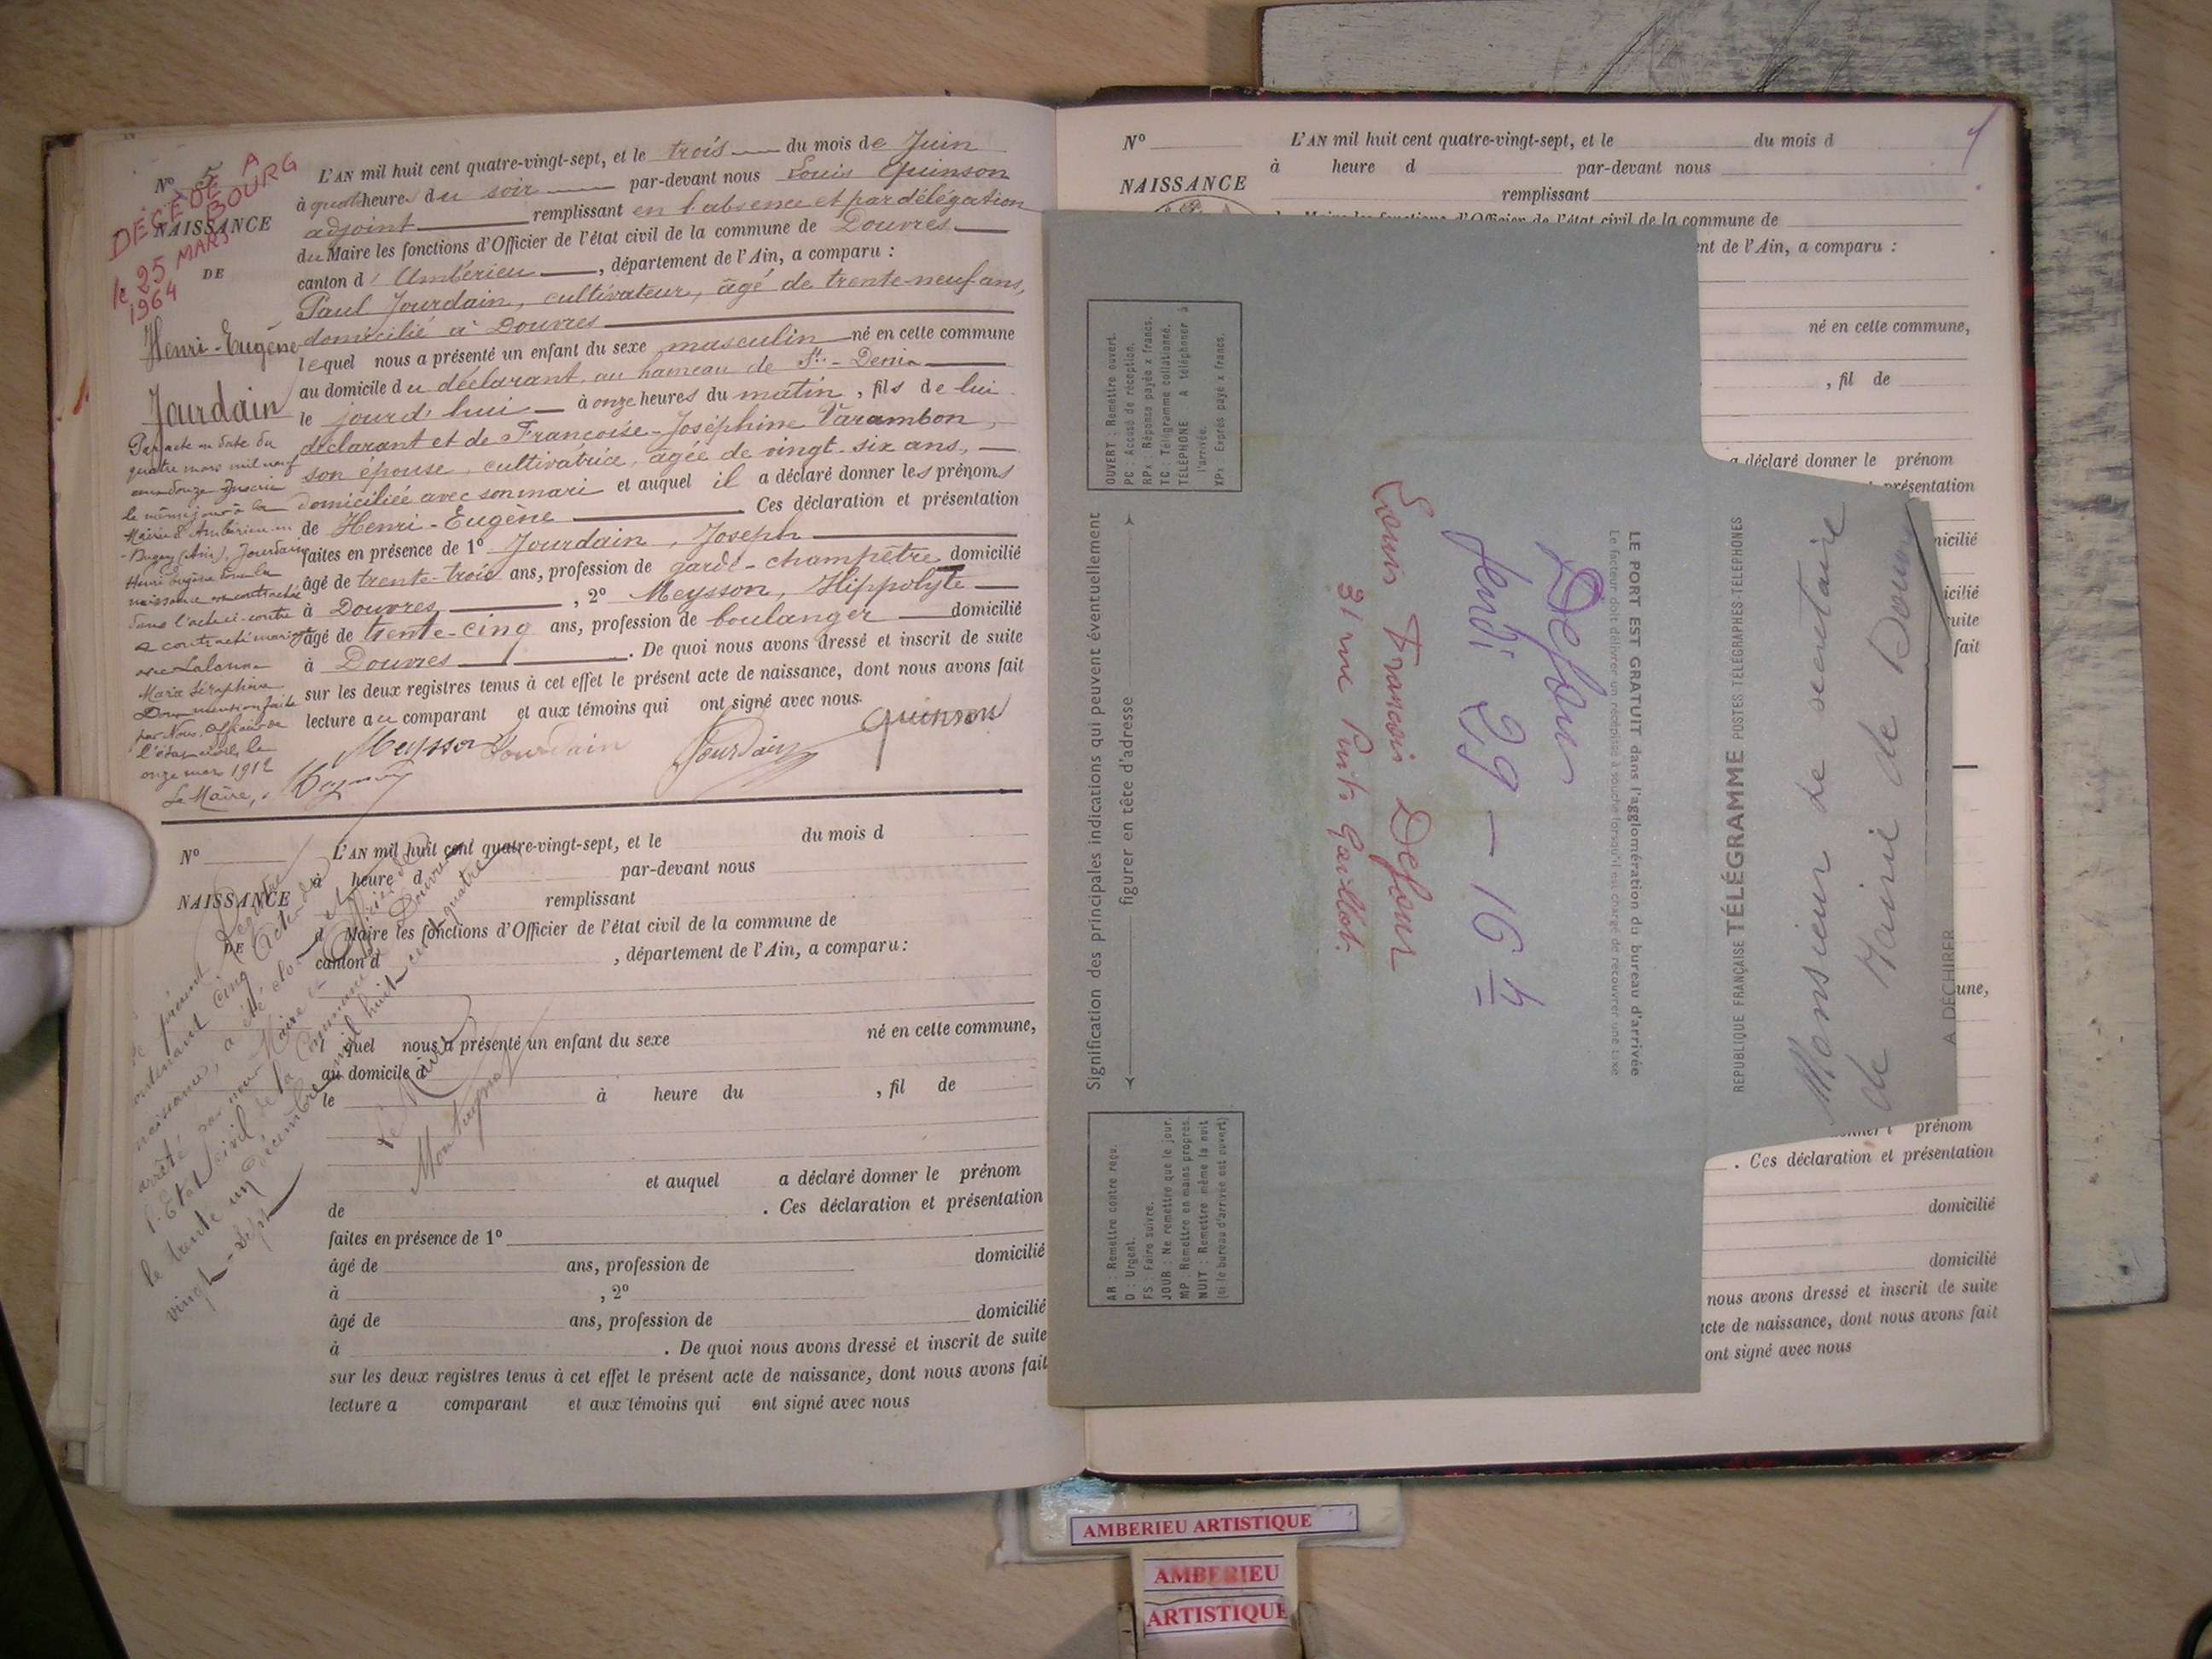 Nº 5
NAISSANCE
DE
DÉCÉDÉ A
BOURG
le 25 MARS
1964
Henri-Eugène
Jourdain
Par acte en date du
quatre mars mil neuf
cent douze inscrit
le même jour à la
Mairie d'Ambérieu-en
-Bugey (Ain), Jourdain
Henri Eugène dont la
naissance est
dans l'acte ci-contre
a contracté mariage
avec Lalanne
Marie Séraphine
Dont mention faite
par Nous, Officier de
l'état civil, le
onze mars 1912
Le Maire,
L'AN mil huit cent quatre-vingt-sept, et le trois du mois de Juin
à quatre heures du soir par-devant nous Louis Quinson
adjoint remplissant en l'absence et par délégation
du Maire les fonctions d'Officier de l'état civil de la commune de Douvres
canton d'Ambérieu, département de l'Ain, a comparu :
Paul Jourdain, cultivateur, âgé de trente-neuf ans,
domicilié à Douvres
lequel nous a présenté un enfant du sexe masculin né en cette commune
au domicile du déclarant, au hameau de St.-Denis
le jourd'hui à onze heures du matin, fils de lui
déclarant et de Françoise-Joséphine Varambon,
son épouse, cultivatrice, âgée de vingt-six ans,
domiciliée avec son mari et auquel il a déclaré donner les prénoms
de Henri-Eugène. Ces déclaration et présentation
faites en présence de 1º Jourdain, Joseph
âgé de trente-trois ans, profession de garde-champêtre domicilié
à Douvres, 2º Meysson, Hippolyte
âgé de trente-cinq ans, profession de boulanger domicilié
à Douvres. De quoi nous avons dressé et inscrit de suite
sur les deux registres tenus à cet effet le présent acte de naissance, dont nous avons fait
lecture au comparant et aux témoins qui ont signé avec nous.
Meysson Jourdain Jourdain Quinson
Nº
NAISSANCE
DE
L'AN mil huit cent quatre-vingt-sept, et le du mois d
à heure d par-devant nous
remplissant
d Maire les fonctions d'Officier de l'état civil de la commune de
canton d , département de l'Ain, a comparu :
quel nous a présenté un enfant du sexe né en cette commune,
au domicile d
le à heure du , fil de
et auquel a déclaré donner le prénom
de . Ces déclaration et présentation
faites en présence de 1º
âgé de ans, profession de domicilié
à , 2º
âgé de ans, profession de domicilié
à . De quoi nous avons dressé et inscrit de suite
sur les deux registres tenus à cet effet le présent acte de naissance, dont nous avons fait
lecture a comparant et aux témoins qui ont signé avec nous
Le présent Registre
contenant cinq Actes de
naissance, a été clos et
arrêté par nous Maire et Officier de
l'Etat civil de la Commune de Douvres
le trente un décembre mil huit cent quatre
vingt-sept
Le Maire
Nº
NAISSANCE
L'AN mil huit cent quatre-vingt-sept, et le du mois d
à heure d par-devant nous
remplissant
Maire les fonctions d'Officier de l'état civil de la commune de
ent de l'Ain, a comparu :
né en cette commune,
, fil de
a déclaré donner le prénom
présentation
micilié
icilié
uite
fait
une,
prénom
. Ces déclaration et présentation
domicilié
domicilié
nous avons dressé et inscrit de suite
acte de naissance, dont nous avons fait
ont signé avec nous
Signification des principales indications qui peuvent éventuellement
figurer en tête d'adresse
OUVERT : Remettre ouvert.
PC : Accusé de réception.
RPx : Réponse payée x francs.
TC : Télégramme collationné.
TÉLÉPHONE A téléphoner à
l'arrivée.
XPx : Exprès payé x francs.
AR : Remettre contre reçu.
D : Urgent.
FS : Faire suivre.
JOUR : Ne remettre que le jour.
MP : Remettre en mains propres.
NUIT : Remettre même la nuit
(si le bureau d'arrivée est ouvert)
31 rue Puits Gaillot.
Louis François Defour
Jeudi 29 - 16 h
Defour
Le facteur doit délivrer un récépissé à souche lorsqu'il est chargé de recouvrer une taxe
LE PORT EST GRATUIT dans l'agglomération du bureau d'arrivée
RÉPUBLIQUE FRANÇAISE TÉLÉGRAMME POSTES TÉLÉGRAPHES-TÉLÉPHONES
Monsieur le secrétaire
de Mairie de Douvres
A DÉCHIRER
AMBERIEU ARTISTIQUE
AMBERIEU
ARTISTIQUE